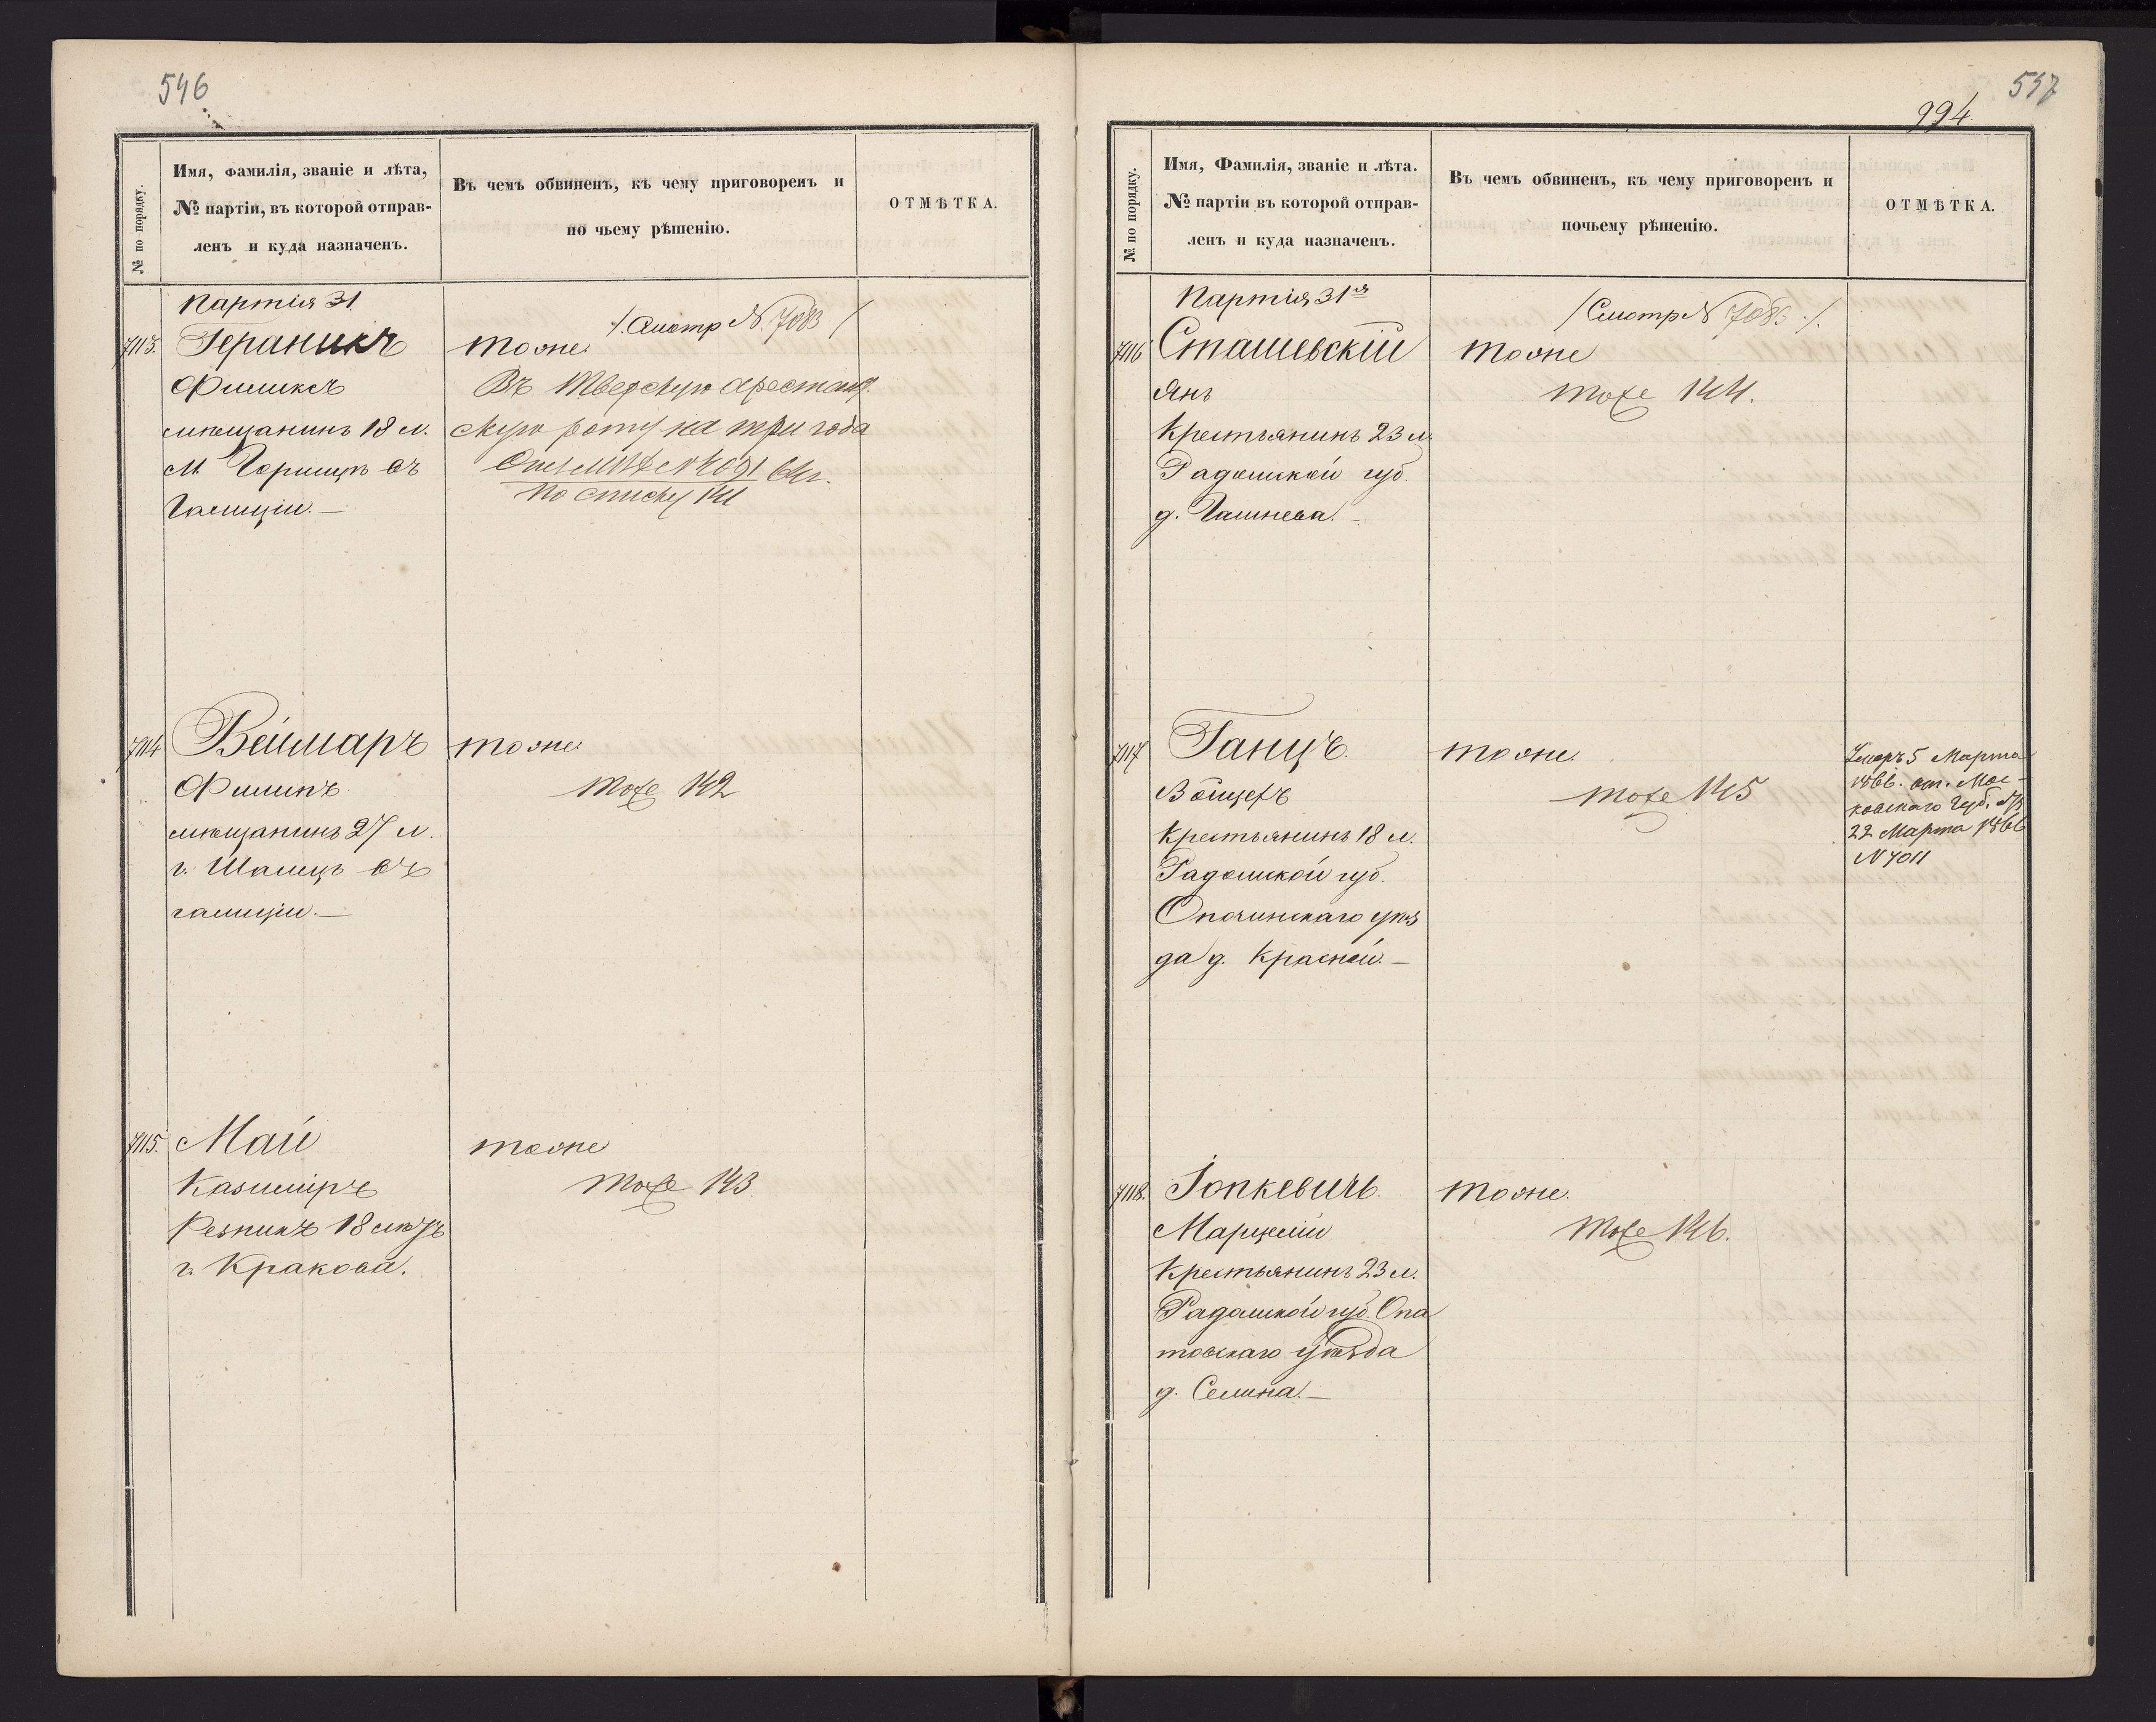 546
№ по порядку.
Имя, фамилія, званіе и лѣта,
№ партіи, въ которой отправ-
ленъ и куда назначенъ.
Въ чемъ обвиненъ, къ чему приговоренъ и
по чьему рѣшенію.
ОТМѢТКА.
Партія 31.
7113. Гераникъ
Филиксъ
мѣщанинъ 18 л.
м. въ
Галиціи.—
/. Смотр N. 7083 /
тоже.
Въ Тверскую арестант.
скую роту на три года
по списку 141
7114 Веймаръ
Филипъ
мѣщанинъ 27 л.
г. въ
галиціи.—
тоже.
тоже 142
7115. Май
Казиміръ
Резникъ 18 лѣтъ
г. Кракова.
тоже
тоже 143
557
994
№ по порядку.
Имя, Фамилія, званіе и лѣта.
№ партіи въ которой отправ-
ленъ и куда назначенъ.
Въ чемъ обвиненъ, къ чему приговоренъ и
почьему рѣшенію.
ОТМѢТКА.
Партія 31я
7116 Сташевскій
Янъ
Крестьянинъ 23 л.
Радомской губ.
д.
/Смотр N 7083 ./.
тоже
тоже 144.
7117 Ганцъ.
Войцехъ
Крестьянинъ 18 л.
Радомской губ.
Опочинскаго уѣз
да д. Красной.—
тоже.
тоже 145
Умеръ 5 Марта
1866. от. Мос-
ковскаго Губ. Пр
22 Марта 1866
N 7011
7118. Іопкевичь.
Марцелій
Крестьянинъ 23 л.
Радомской губ. Опа
товскаго уѣзда
д. Селина.—
тоже.
тоже 146.